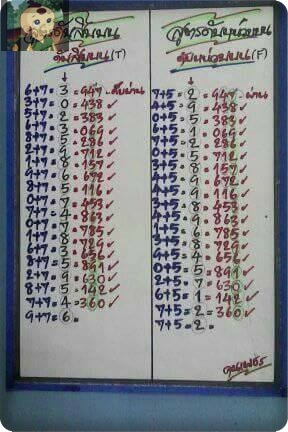 ดับสิบบน(T)
↓
6+7=3=947-
3+7=0=438✓
5+7=2=383✓
6+7=3=069✓
5+7=2=286✓
2+7=9=712✓
1+7=8=157✓
9+7=6=672✓
8+7=5=116✓
0+7=7=453✓
7+7=4=863✓
0+7=7=785✓
1+7=8=729✓
6+7=3=656✓
8+7=5=891✓
2+7=9=630✓
8+7=5=142✓
7+7=4=360✓
9+7=6=
สูตรดับหน่วยบน
ดับหน่วยบน(F)
↓
7+5=2=947-ผ่าน
4+5=9=438✓
0+5=5=383✓
6+5=1=069✓
7+5=2=286✓
0+5=5=712✓
3+5=8=157✓
4+5=9=672✓
4+5=9=116✓
3+5=8=453✓
4+5=9=863✓
6+5=1=785✓
3+5=8=729✓
4+5=9=656✓
0+5=5=891✓
2+5=7=630✓
6+5=1=142✓
7+5=2=360✓
7+5=2=